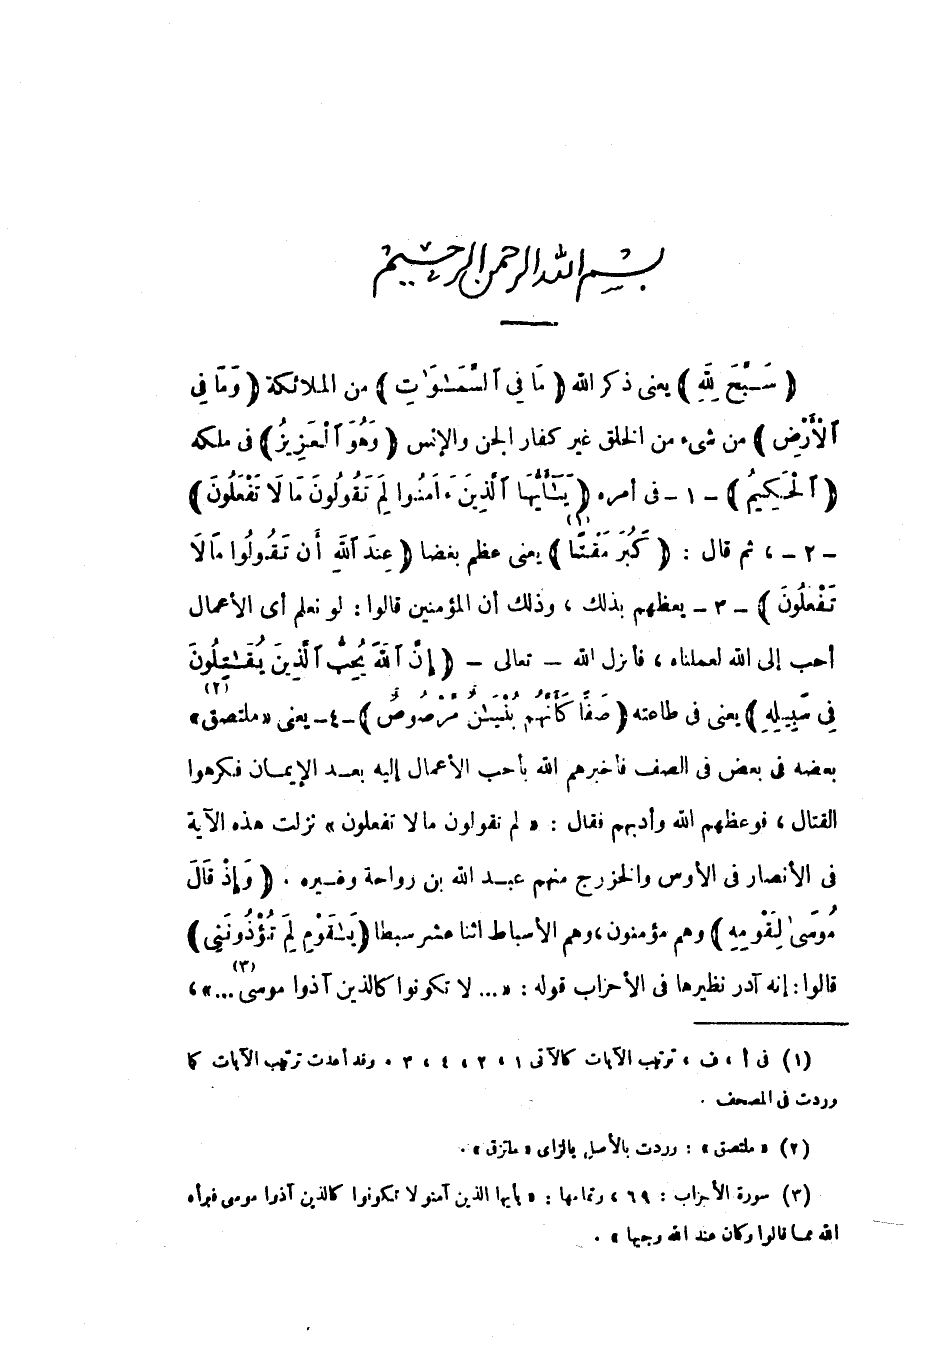 بسم الله الرحمن الرحيم
( سَبَّحَ لِلَّهِ ) يعنى ذكر الله ( مَا فِى ٱلسَّمَـٰوَٰتِ ) من الملائكة ( وَمَا فِى
ٱلْأَرْضِ ) من شىء من الخلق غير كفار الجن والإنس ( وَهُوَ ٱلْعَزِيزُ ) فى ملكه
( ٱلْحَكِيمُ ) - ١ - فى أمره ( يَـٰٓأَيُّهَا ٱلَّذِينَ ءَامَنُوا لِمَ تَقُولُونَ مَا لَا تَفْعَلُونَ )
- ٢ - ، ثم قال : ( كَبُرَ مَقْتًا )(١) يعنى عظم بغضا ( عِندَ ٱللَّهِ أَن تَقُولُوا مَا لَا
تَفْعَلُونَ ) - ٣ - يعظهم بذلك ، وذلك أن المؤمنين قالوا : لو نعلم أى الأعمال
أحب إلى الله لعملناه ، فأنزل الله - تعالى - ( إِنَّ ٱللَّهَ يُحِبُّ ٱلَّذِينَ يُقَـٰتِلُونَ
فِى سَبِيلِهِ ) يعنى فى طاعته ( صَفًّا كَأَنَّهُم بُنْيَـٰنٌ مَّرْصُوصٌ ) - ٤ - يعنى « ملتصق »(٢)
بعضه فى بعض فى الصف فأخبرهم الله بأحب الأعمال إليه بعـد الإيمـان فكرهوا
القتال ، فوعظهم الله وأدبهم فقال : « لم تقولون مالا تفعلون » نزلت هذه الآية
فى الأنصار فى الأوس والخزرج منهم عبـد الله بن رواحة وغـيره . ( وَإِذْ قَالَ
مُوسَىٰ لِقَوْمِهِ ) وهم مؤمنون ، وهم الأسباط اثنا عشر سبطا ( يَـٰقَوْمِ لِمَ تُؤْذُونَنِى )
قالوا : إنه آدر نظيرها فى الأحزاب قوله : « ... لا تكونوا كالذين آذوا موسى ... »(٣) ،
(١) فى أ ، ف ، ترتيب الآيات كالآتى ١ ، ٢ ، ٤ ، ٣ . وقد أعدت ترتيب الآيات كما
وردت فى المصحف .
(٢) « ملتصق » : وردت بالأصل بالزاى « ملتزق » .
(٣) سورة الأحزاب : ٦٩ ، وتمامها : « يأيها الذين آمنو لا تكونوا كالذين آذوا موسى فبرأه
الله مما قالوا وكان عند الله وجيها » .